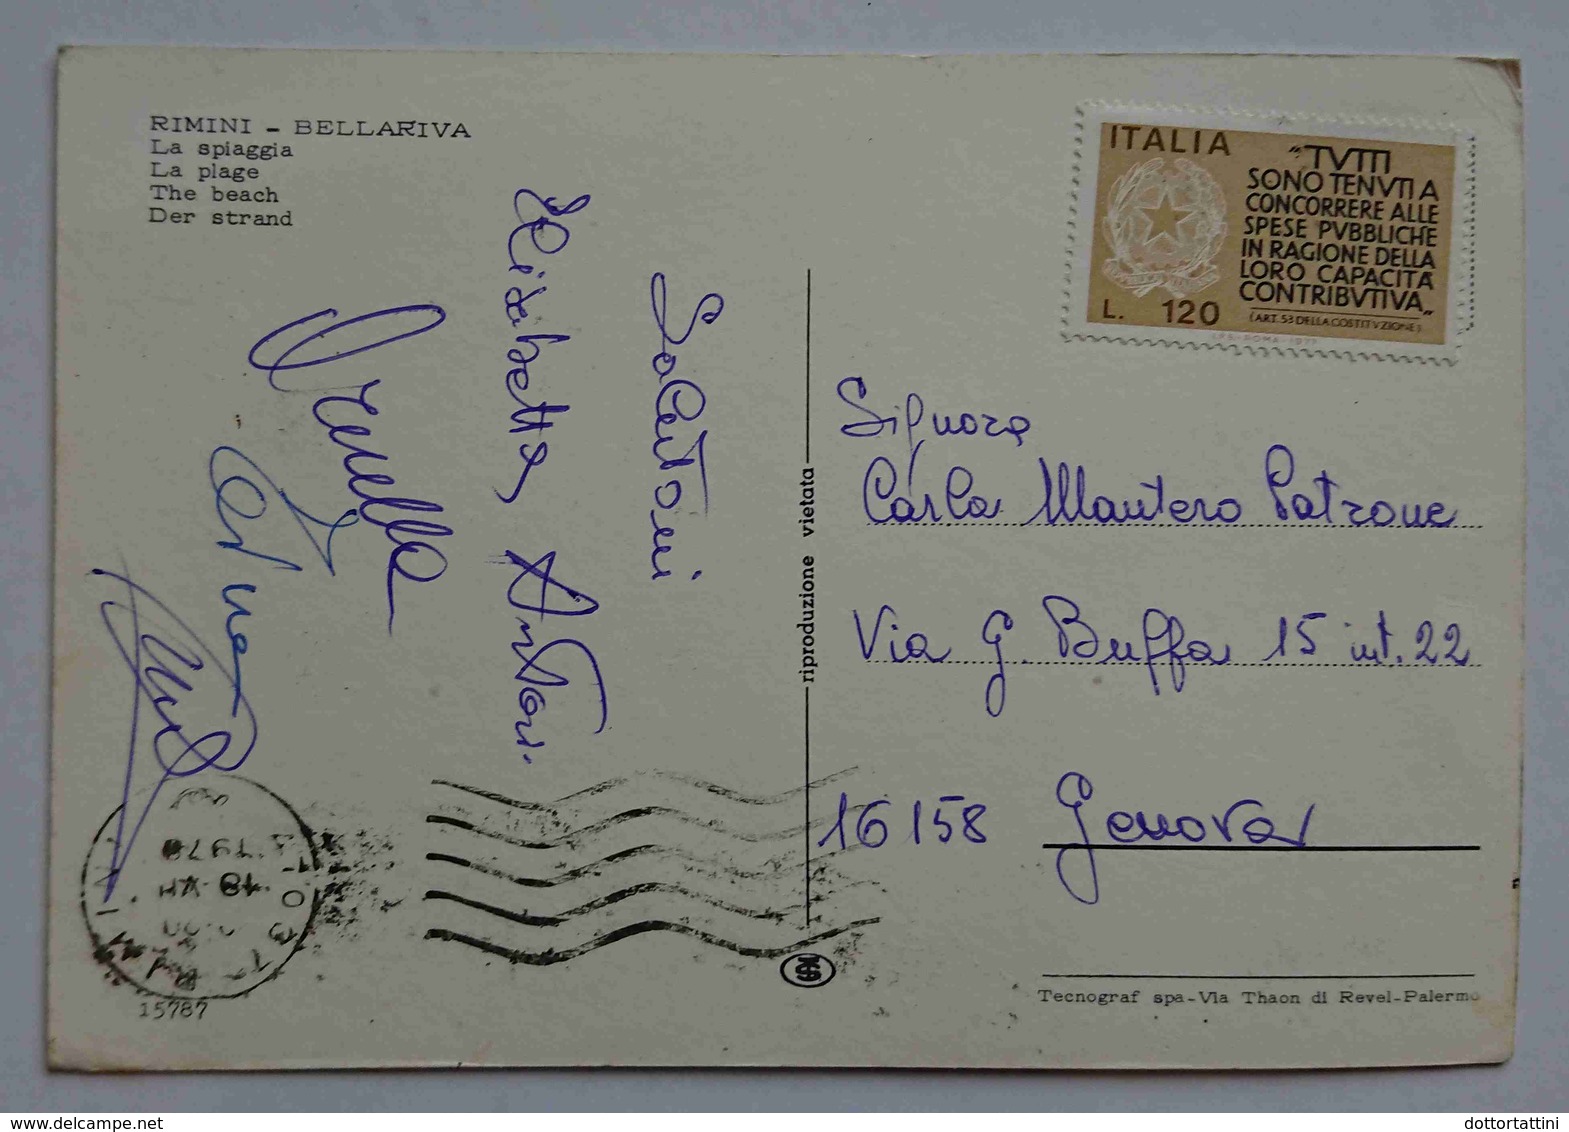 RIMINI - BELLARIVA
La spiaggia
La plage
The beach
Der strand
ITALIA
"TVTTI
SONO TENVTI A
CONCORRERE ALLE
SPESE PVBBLICHE
IN RAGIONE DELLA
LORO CAPACITÀ
CONTRIBVTIVA"
(ART. 53 DELLA COSTITVZIONE)
L. 120
I.P.S.-ROMA-1977
Elisabetta
Ornella
riproduzione vietata
Signora
Carla Mantero Patrone
Via G. Buffa 15 int. 22
16158 Genova
15787
Tecnograf spa-Via Thaon di Revel-Palermo
www.delcampe.net
dottortattini